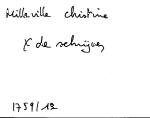 Millaville christine
X de schrijver
1759/12